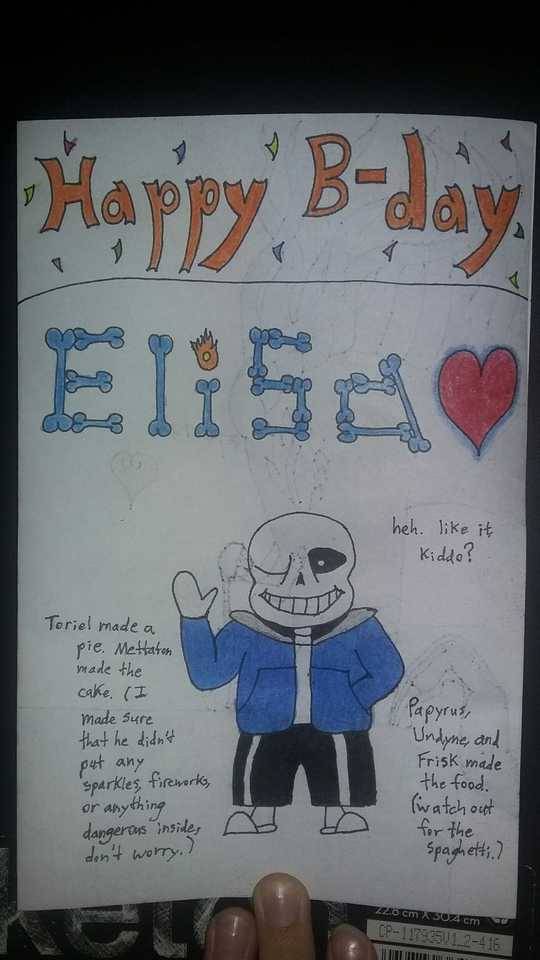 Happy B-day
Elisa
heh. like it
kiddo?
Toriel made a
pie. Mettaton
made the
cake. (I
made sure
that he didn't
put any
sparkles, fireworks,
or anything
dangerous inside,
don't worry.)
Papyrus,
Undyne, and
Frisk made
the food.
(watch out
for the
spaghetti.)
22.8 cm X 30.4 cm
CP-117935V1_2-416